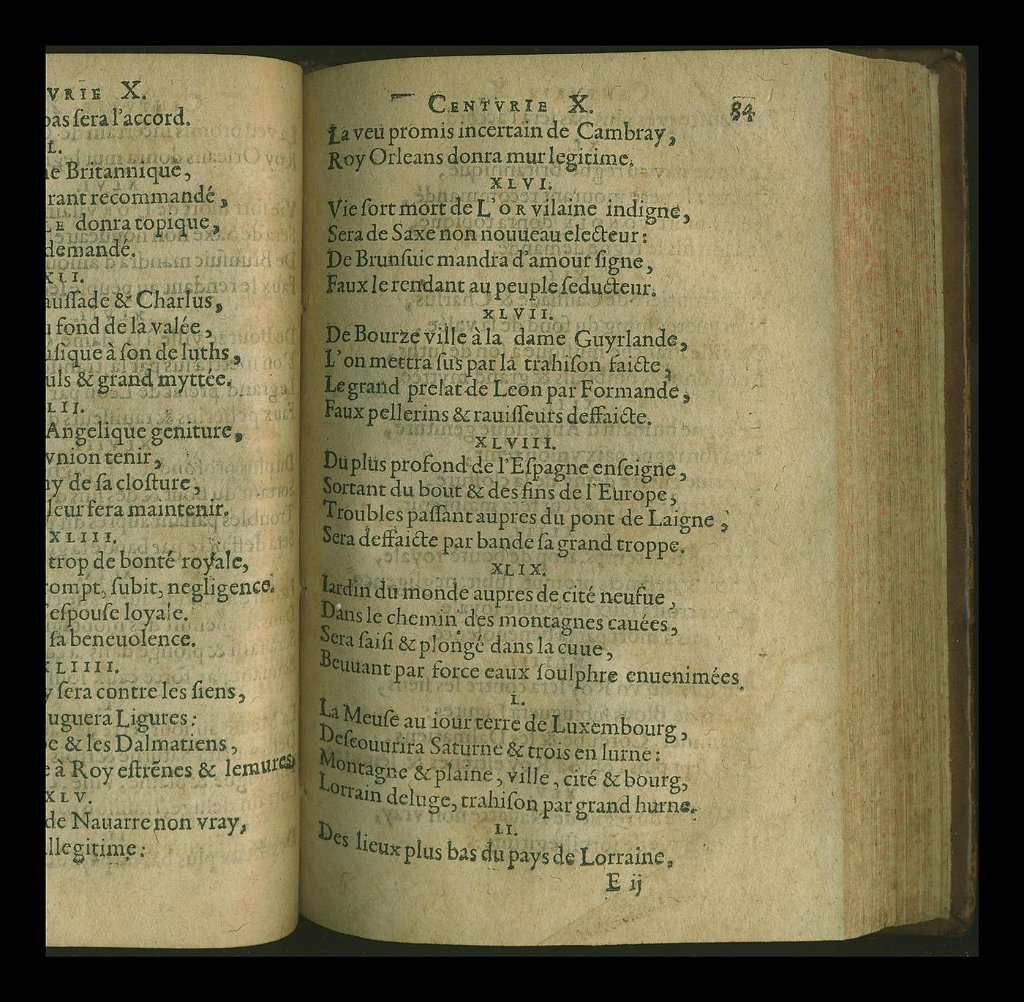 VRIE X.
pas ſera l'accord.
L.
e Britannique,
rant recommandé,
LE donra topique,
demandé.
XLI.
auſſade & Charlus,
u fond de la valée,
uſique à ſon de luths,
uls & grand myttée.
LII.
Angelique geniture,
vnion tenir,
ny de ſa cloſture,
leur fera maintenir.
XLIII.
trop de bonté royale,
ompt, ſubit, negligence.
l'eſpouſe loyale.
ſa beneuolence.
XLIIII.
y ſera contre les ſiens,
uguera Ligures:
e & les Dalmatiens,
e à Roy eſtrẽnes & lemures.
XLV.
de Nauarre non vray,
illegitime:
CENTVRIE X. 84
La veu promis incertain de Cambray,
Roy Orleans donra mur legitime.
XLVI.
Vie ſort mort de L'OR vilaine indigne,
Sera de Saxe non nouueau electeur:
De Brunſuic mandra d'amour ſigne,
Faux le rendant au peuple ſeducteur.
XLVII.
De Bourze ville à la dame Guyrlande,
L'on mettra ſus par la trahiſon faicte,
Le grand prelat de Leon par Formande,
Faux pellerins & rauiſſeurs deffaicte.
XLVIII.
Du plus profond de l'Eſpagne enſeigne,
Sortant du bout & des fins de l'Europe,
Troubles paſſant aupres du pont de Laigne,
Sera deffaicte par bande ſa grand troppe.
XLIX.
Iardin du monde aupres de cité neufue,
Dans le chemin des montagnes cauées,
Sera ſaiſi & plongé dans la cuue,
Beuuant par force eaux ſoulphre enuenimées.
L.
La Meuſe au iour terre de Luxembourg,
Deſcouurira Saturne & trois en lurne:
Montagne & plaine, ville, cité & bourg,
Lorrain deluge, trahiſon par grand hurne.
LI.
Des lieux plus bas du pays de Lorraine,
E ij